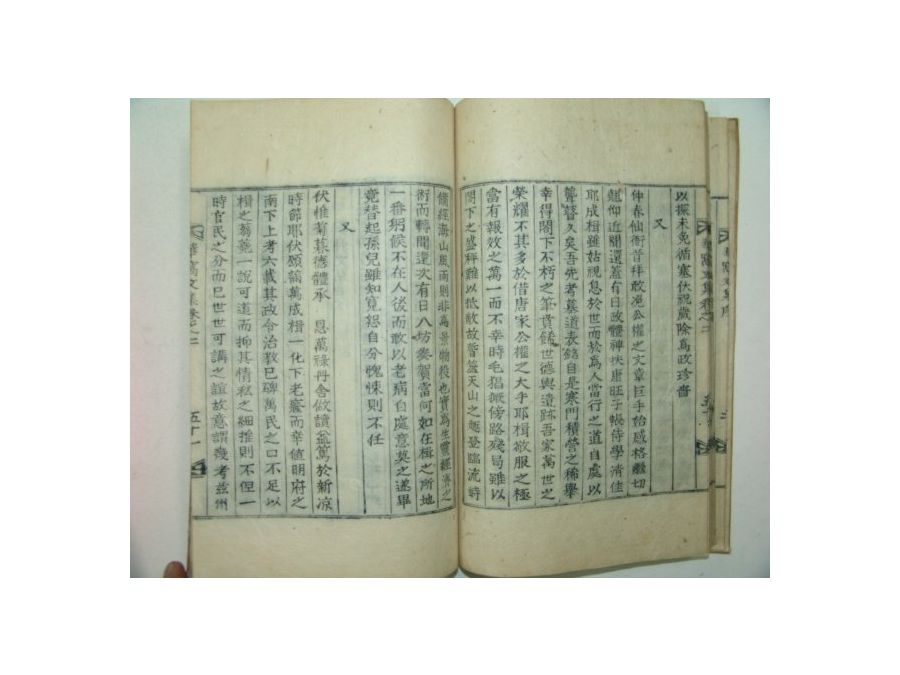 以探未免循塞伏祝歲除爲政珍嗇
又
仲春仙衙昔拜敢凂公權之文章巨手始感格繼切
趍仰近聞還蓋有日政體神扶唐旺子帳侍學淸佳
耶成楫雖姑視息於世而於爲人當行之道自處以
聾瞽久矣吾先考墓道表銘自是寒門積營之稀擧
幸得閤下不朽之筆賁餙世德與遺跡吾家萬世之
榮耀不其多於借唐家公權之大手耶楫欲服之極
當有報效之萬一而不幸時毛猖獗傍路殘局雖以
閤下之盛釋難以抵敵故暫藍天山之趣登臨流峙
備經海山風雨則非爲景物役也實爲生靈經濟之
術而轉聞還次有日八坊奏賀當何如在楫之所地
一番躬候不在人後而敢以老病自處意莫之遂畢
竟替起孫兒雖知寬恕自分愧悚則不任
又
伏惟菊暮德體承 恩萬祿丹舍做讀益篤於新凉
時節耶伏頤謁萬成楫一化下老癃而幸値明府之
南下上考六載其政令治敎已碑萬民之口不足以
楫之蒭蕘一說可達而抑其情私之細推則不但一
時官民之分而已世世可講之誼故意謂幾考玆州
文集卷之二
五十一